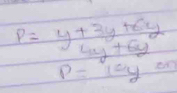 P = y + 3y + 6y
4y + 6y
P = 10y cm